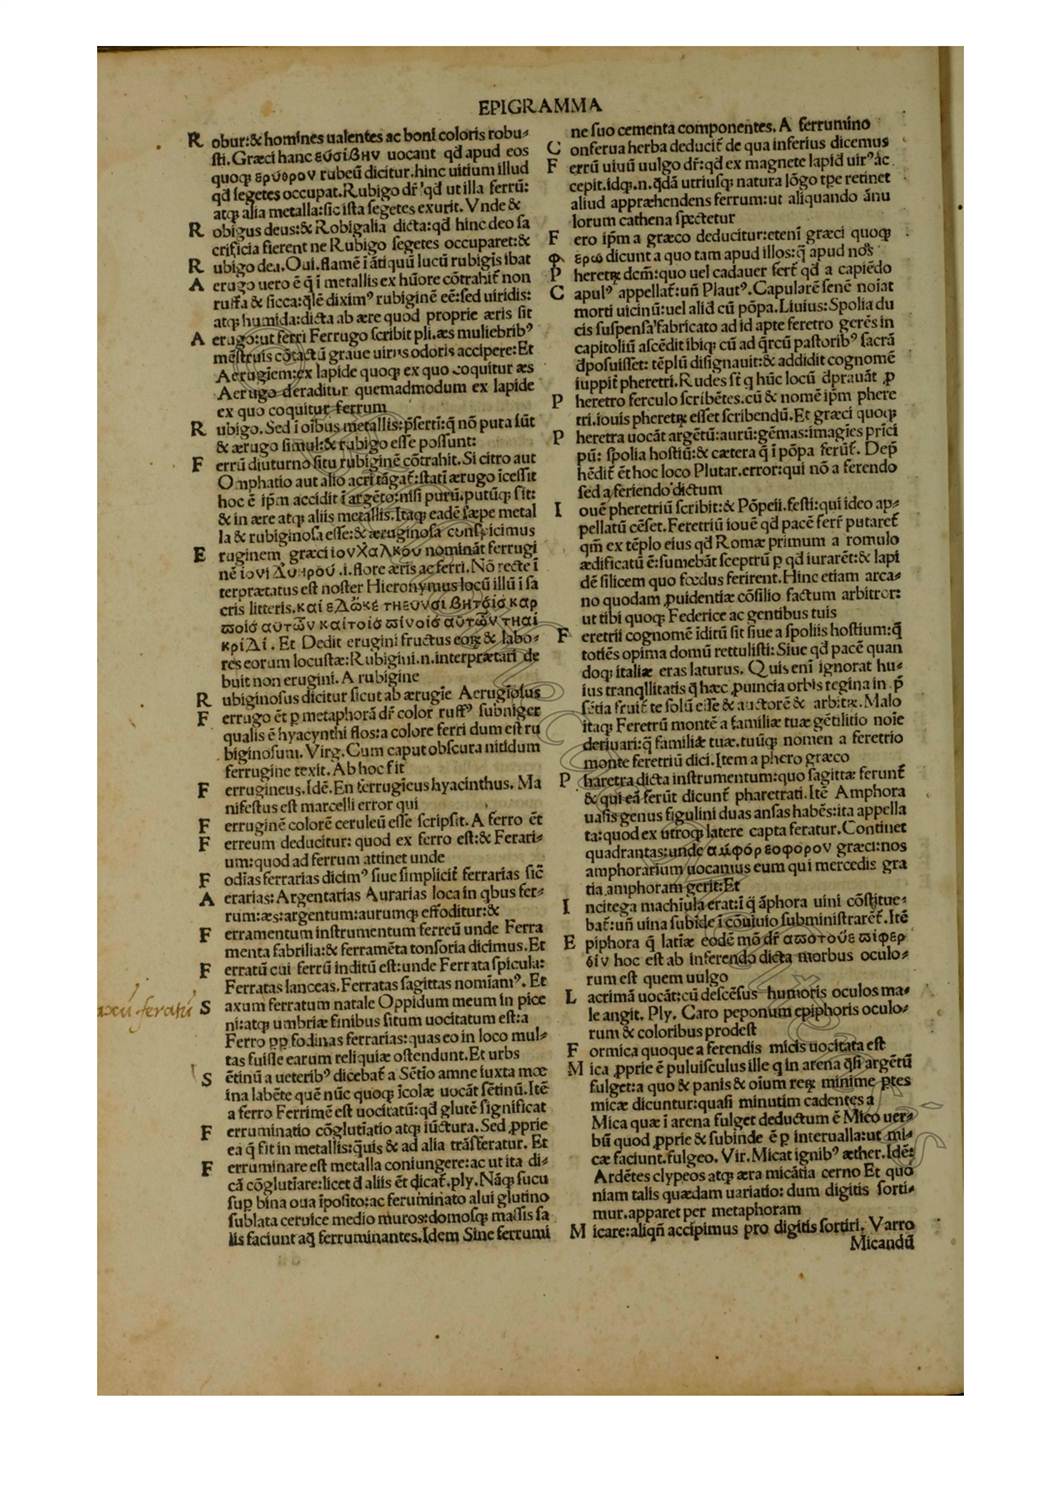 EPIGRAMMA
Robur:& homines ualentes ac boni coloris robu-
sti. Græci hanc ευσίβην uocant qđ apud eos
quoqꝫ ερυθρον rubeū dicitur. hinc uitium illud
qđ segetes occupat. Rubigo dr̄ qđ ut illa ferrū:
atqꝫ alia metalla: sic ista segetes exurit. Vnde &
Robigus deus:& Robigalia dicta: qđ hinc deo sa
crificia fierent ne Rubigo segetes occuparet:&
Rubigo dea. Oui. flamē ī ātiquū lucū rubigis ibat
Aerugo uero ē q̄ ī metallis ex hūore cōtrahit̄ non
ruffa & sicca: q̄lē diximꝰ rubiginē eē: sed uiridis:
atqꝫ humida: dicta ab ære quod proprie æris sit
Aerugo: ut ferri Ferrugo scribit pli. æs muliebribꝰ
mēstruis cōtactū graue uirus odoris accipere: Et
Aerugiem: ex lapide quoqꝫ ex quo coquitur æs
Aerugo deraditur quemadmodum ex lapide
ex quo coquitur ferrum
Rubigo. Sed ī oībus metallis: p̄serti: q̄ nō puta sūt
& ærugo simul:& rubigo esse possunt:
Ferrū diuturno situ rubiginē cōtrahit. Si citro aut
Omphatio aut alio acri tāgat̄: stati ærugo īcessit
hoc ē ip̄m accidit ī argēto: nisi purū. putūqꝫ sit:
& in ære atqꝫ aliis metallis. Itaqꝫ eadē sæpe metal
la & rubiginosa esse:& æruginosa conspicimus
Eruginem græci ιονχαλκου nomināt ferrugi
nē ιονι Δυηρου .i. flore æris ac ferri. Nō recte ī
terprætatus est noster Hieronymus locū illū ī sa
cris litteris. και εΔωκε τηευνσι βητσισ καρ
ϖοισ αυτων και τοισ ϖινοισ αυτων τηαι
κριΔι . Et Dedit erugini fructus eoꝝ & labo-
res eorum locustæ: Rubigini .n. interprætari de
buit non erugini. A rubigine
Rubiginosus dicitur sicut ab ærugie Aerugiosus
Ferrugo ēt ꝑ metaphorā dr̄ color ruffꝰ subniger
qualis ē hyacynthi flos: a colore ferri dum est ru
biginosum. Virg. Cum caput obscura nitidum
ferrugine texit. Ab hoc fit
Ferrugineus. Idē. En ferrugīeus hyacinthus. Ma
nifestus est marcelli error qui
Ferruginē colorē ceruleū esse scripsit. A ferro ēt
Ferreum deducitur: quod ex ferro est:& Ferari-
um: quod ad ferrum attinet unde
Fodīas ferrarias dicimꝰ siue simplicit̄ ferrarias sic̄
Aerarias: Argentarias Aurarias loca in qbus fer-
rum: æs: argentum: aurumqꝫ effoditur:&
Ferramentum instrumentum ferreū unde Ferra
menta fabrilia:& ferramēta tonsoria dicimus. Et
Ferratū cui ferrū inditū est: unde Ferrata spicula:
Ferratas lanceas. Ferratas sagittas nomīamꝰ. Et
Saxum ferratum natale Oppidum meum in pice
ni: atqꝫ umbriæ finibus situm uocitatum est: a
Ferro ꝓꝑ fodinas ferrarias: quas eo in loco mul-
tas fuisse earum reliquiæ ostendunt. Et urbs
Sētinū a ueteribꝰ dicebat̄ a Sētio amne iuxta mœ
ina labēte quē nūc quoqꝫ īcolæ uocāt sētinū. Itē
a ferro Ferrimē est uocitatū: qđ glutē significat
Ferruminatio cōglutīatio atqꝫ iūctura. Sed ꝓprie
ea q̄ fit in metallis: quis & ad alia trāsferatur. Et
Ferruminare est metalla coniungere: ac ut ita di-
cā cōglutīare: licet đ aliis ēt dicat̄. ply. Nāqꝫ sucu
suꝑ bina oua īposito: ac feruminato alui glutino
sublata ceruice medio muros: domosqꝫ massis sa
lis faciunt aq̄ ferruminantes. Idem Sine ferrumi
ne suo cementa componentes. A ferrumino
Conferua herba deducit̄ de qua inferius dicemus
Ferrū uiuū uulgo dr̄: qđ ex magnete lapid uirꝰ ac
cepit. idqꝫ .n. q̄dā utriusqꝫ natura lōgo tꝑe retinet
aliud appræhendens ferrum: ut aliquando ānu
lorum cathena spectetur
Fero ip̄m a græco deducitur: etenī græci quoqꝫ
φερω dicunt a quo tam apud illos: q̄ apud nos
Pheretꝝ dcm̄: quo uel cadauer fert̄ qđ a capiēdo
Capulꝰ appellat̄: uñ Plautꝰ. Capularē senē noīat
morti uicinū: uel aliđ cū pōpa. Liuius: Spolia du
cis suspensa fabricato ad id apte feretro gerēs in
capitoliū ascēdit ibiqꝫ cū ad q̄rcū pastoribꝰ sacrā
đposuisset: tēplū disignauit:& addidit cognomē
iuppit̄ pheretri. Rudes st̄ q hūc locū đprauāt ꝓ
Pheretro ferculo scribētes. cū & nomē ip̄m phere
tri. iouis pheretꝝ esset scribendū. Et græci quoqꝫ
Pheretra uocāt argētū: aurū: gēmas: imagies prīci
pū: spolia hostiū:& cætera q̄ ī pōpa ferūt̄. Dep̄
hēdit̄ ēt hoc loco Plutar. error: qui nō a ferendo
sed a feriendo dictum
Iouē pheretriū scribit:& Pōpeii. festi: qui ideo ap-
pellatū cēset. Feretriū iouē qđ pacē ferr̄ putaret̄
qm̄ ex tēplo eius qđ Romæ primum a romulo
ædificatū ē: sumebāt sceptrū ꝑ qđ iurarēt:& lapi
dē silicem quo fœdus ferirent. Hinc etiam arca-
no quodam ꝓuidentiæ cōsilio factum arbitror:
ut tibi quoqꝫ Federice ac gentibus tuis
Feretrii cognomē īditū sit siue a spoliis hostium: q̄
totiēs opima domū rettulisti: Siue qđ pacē quan
doqꝫ italiæ eras laturus. Quis enī ignorat hu-
ius tranqllitatis q̄ hæc ꝓuincia orbis regina in p̄
sētia fruit̄ te solū esse & auctorē & arbitꝝ. Malo
itaqꝫ Feretrū montē a familiæ tuæ gētilitio noīe
deriuari: q̄ familiæ tuæ. tuūqꝫ nomen a feretrio
monte feretriū dici. Item a phero græco
Pharetra dicta instrumentum: quo sagittæ ferunt̄
& qui eā ferūt dicunt̄ pharetrati. Itē Amphora
uasis genus figulini duas ansas habēs: ita appella
ta: quod ex utroqꝫ latere capta feratur. Continet
quadrantas: unde αμφορεοφορον græci: nos
amphorarium uocamus eum qui mercedis gra
tia amphoram gerit: Et
Incitega machiula erat: ī q̄ āphora uini cōstitue-
bat̄: uñ uina subīde ī cōuiuio subministrarēt̄. Itē
Epiphora q̄ latiæ eodē mō dr̄ αϖοτουε ϖιφερ
διν hoc est ab inferendo dicta morbus oculo-
rum est quem uulgo
Lacrimā uocāt: cū descēsus humoris oculos ma-
le angit. Ply. Caro peponum epiphoris oculo-
rum & coloribus prodest
Formica quoque a ferendis micis uocitata est
Mica ꝓprie ē puluisculus ille q in arena q̄si argētū
fulget: a quo & panis & oīum reꝝ minime ꝑtes
micæ dicuntur: quasi minutim cadentes a
Mica quæ ī arena fulget deductum ē Mico uer-
bū quod ꝓprie & subinde ē ꝑ interualla: ut mi-
cæ faciunt. fulgeo. Vir. Micat ignibꝰ æther. Idē:
Ardētes clypeos atqꝫ æra micātia cerno Et quo
niam talis quædam uariatio: dum digitis sorti-
mur. apparet per metaphoram
Micare: aliqñ accipimus pro digitis sortiri. Varro
Micandū
saxū ferratū